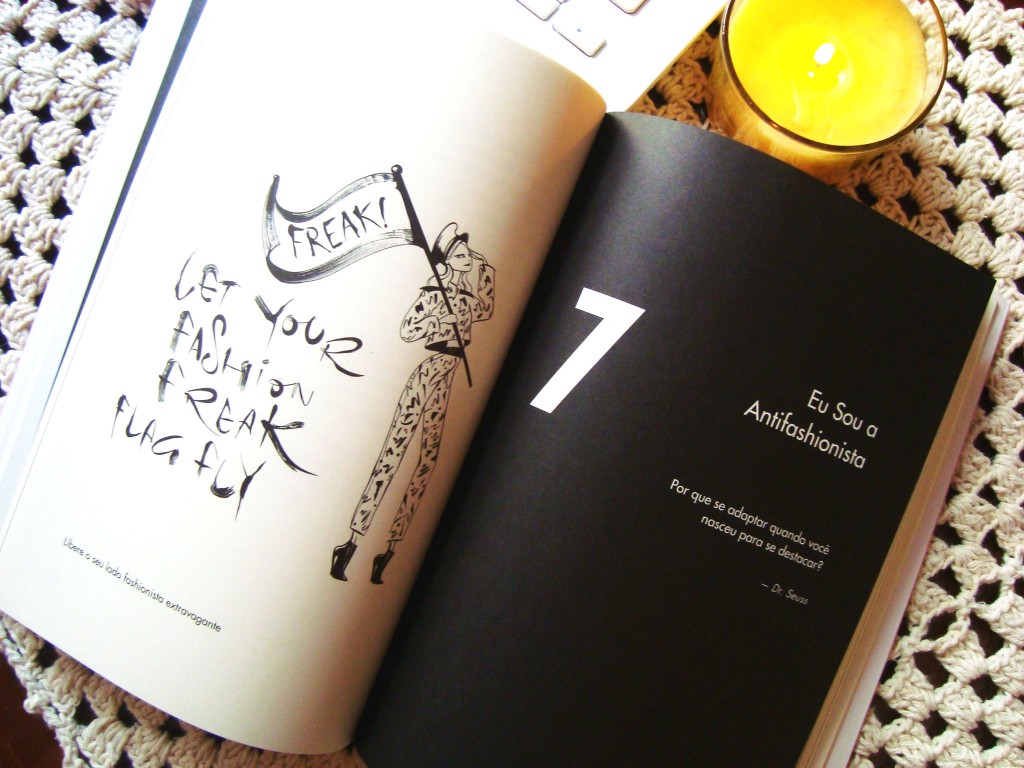 FREAK!
LET YOUR
FASHION
FREAK
FLAG FLY
Libere o seu lado fashionista extravagante
7
Eu Sou a
Antifashionista
Por que se adaptar quando você
nasceu para se destacar?
— Dr. Seuss